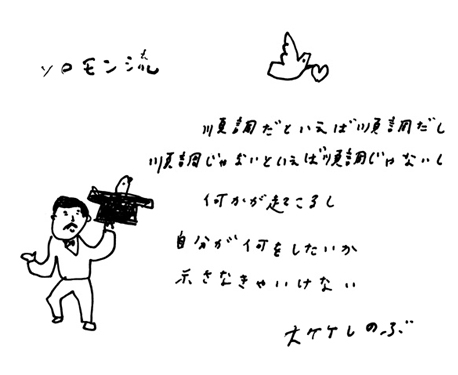 ソロモン流
順調だといえば順調だし
順調じゃないといえば順調じゃないし
何かが起こるし
自分が何をしたいか
示さなきゃいけない
大ケケしのぶ